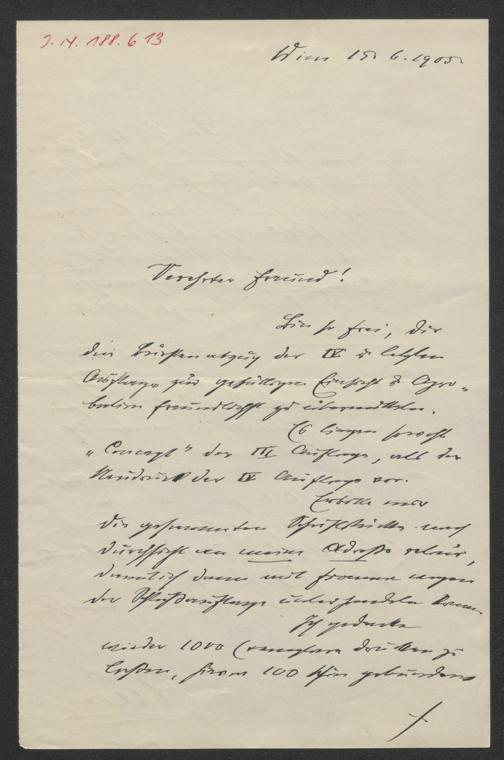 J. N. 188.613
Wien 15. 6. 1905.
Verehrter Freund!
Bin so frei, Dir
den Bürstenabzug der IV & letzten
Auflage zur gefälligen Einsicht & Appro=
bation freundlichst zu übermitteln.
Es liegen sowohl
„Concept" der III Auflage, als der
Neudruck der IV Auflage vor.
Erbitte mir
die gesammten Schriftstücke nach
Durchsicht an meine Adresse retour,
damit ich dann mit Fromme wegen
der Schlußauflage unterhandeln kann.
Ich gedenke
wieder 1000 Exemplare drucken zu
lassen, hievon 100 schön gebunden